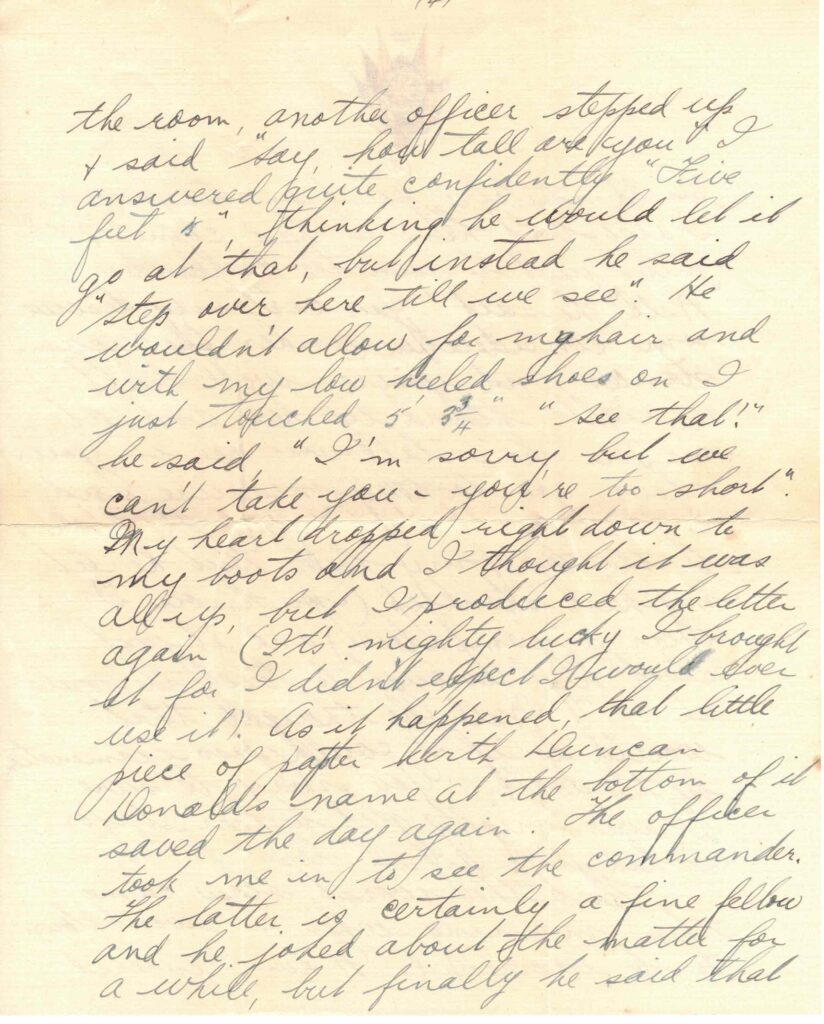 (4)
the room, another officer stepped up
& said "say, how tall are you" I
answered quite confidently "Five
feet 5", thinking he would let it
go at that, but instead he said
"step over here till we see". He
wouldn't allow for my hair and
with my low heeled shoes on I
just touched 5' 3 3/4" "see that!"
he said, "I'm sorry but we
can't take you - you're too short".
My heart dropped right down to
my boots and I thought it was
all up, but I produced the letter
again (It's mighty lucky I brought
it for I didn't expect I would ever
use it). As it happened, that little
piece of paper with Duncan
Donald's name at the bottom of it
saved the day again. The officer
took me in to see the commander.
The latter is certainly a fine fellow
and he joked about the matter for
a while, but finally he said that